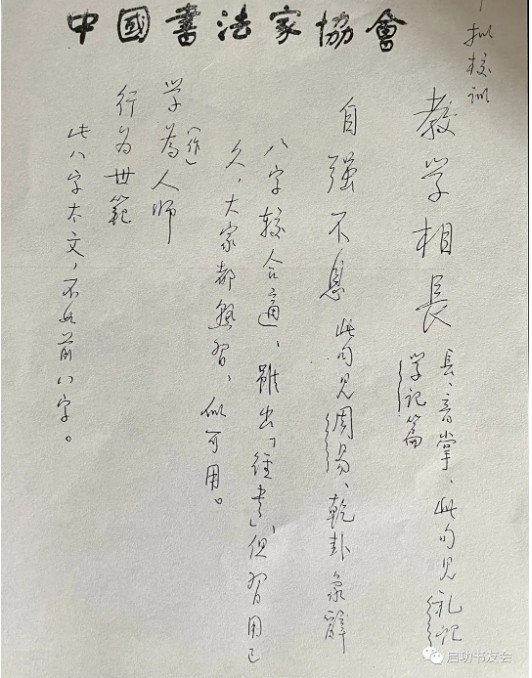 中國書法家協會
拟校训
教学相長 長、音掌、此句见礼记
学记篇
自强不息 此句见周易、乾卦象辭
八字較合適、雖出「经书」但習用已
久，大家都熟習，似可用。
学為人师
（作）
行为世範
此八字太文，不如前八字。
启功书友会